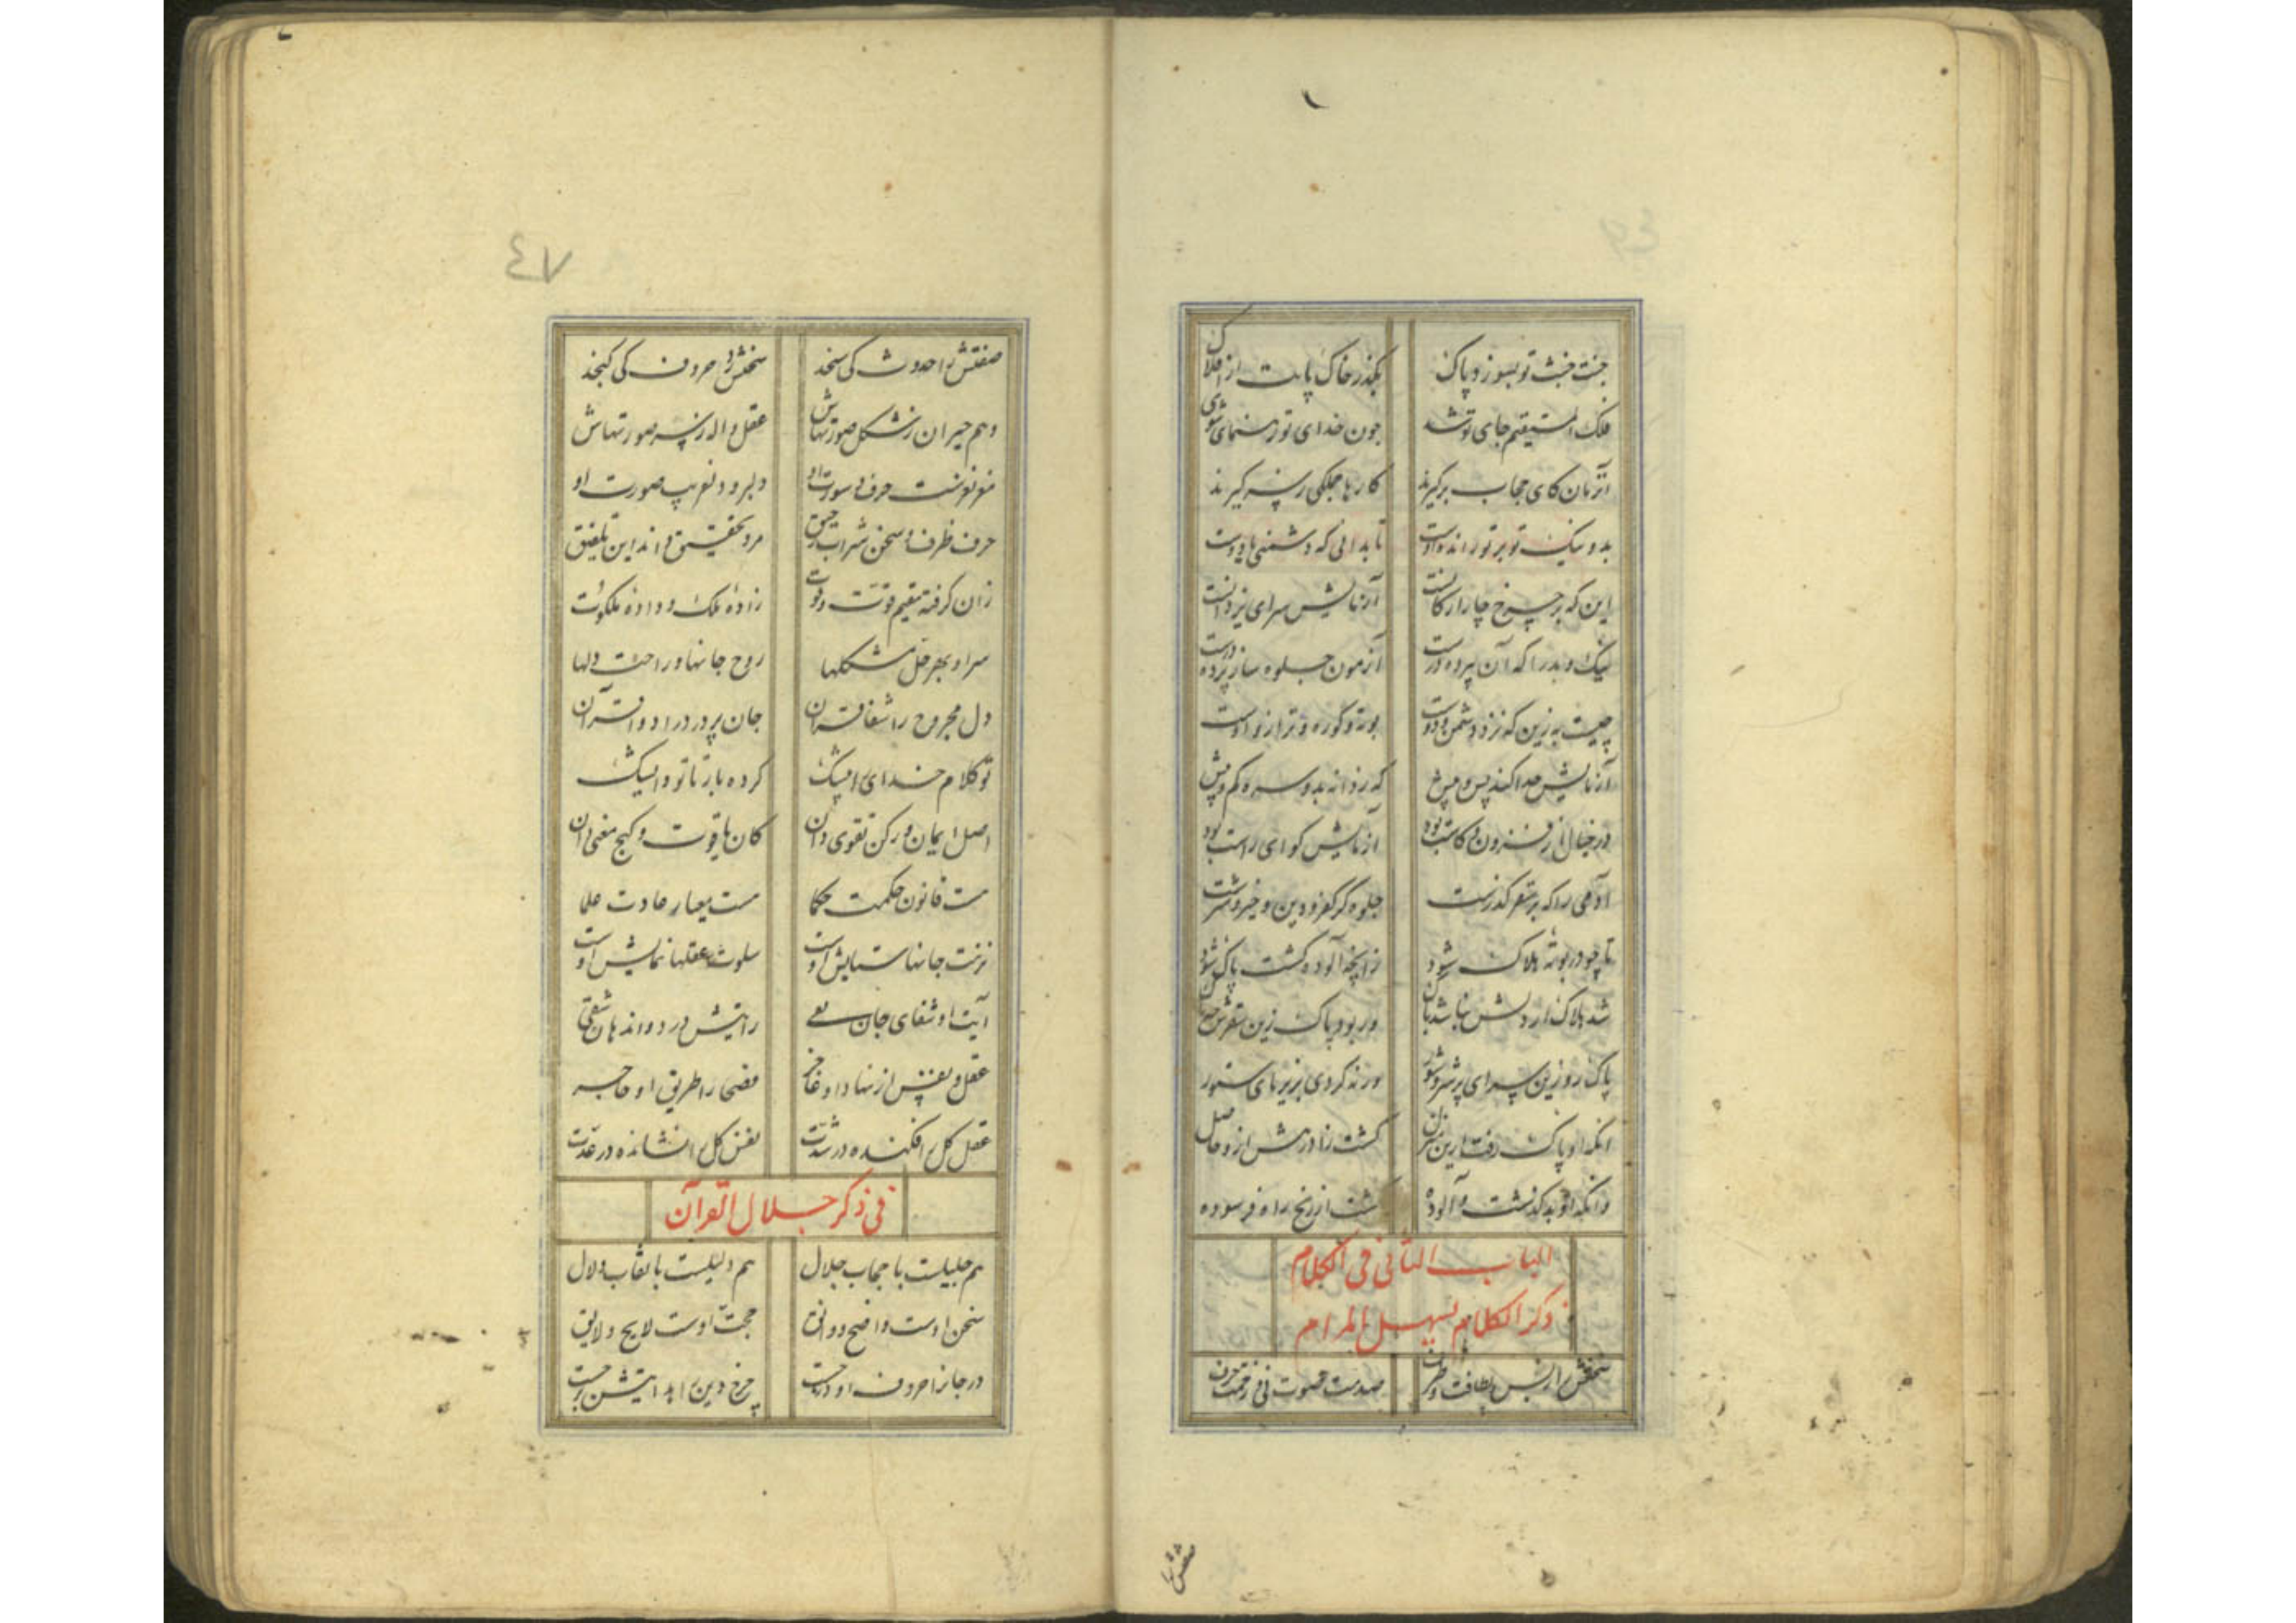 جنت خبث تو بسوزد پاک بگذرد خاک پایت از افلاک
فلک المستقیم جای تو شد چون خدای تو رهنمای شوی
آن زمان کای حجاب برگیرند کارها جملگی ز سر گیرند
بد و نیک تو بر تو راند دوست تا بدانی که دشمنی یا دوست
این که بر چرخ چار ارکانست آزمایش سرای یزدانست
نیک و بد را که آن پرده درست آزمون جلوه ساز پرده درست
چیست به زین که نزد دشمن و دوست بوته و کوره و ترازو اوست
آزمایش جدا کند پس و پیش که ز دانه بد و سره کم و بیش
در خیال ار فزون و کاست بود آزمایش گوای راست بود
آدمی را که بر سقر گذرست جلوه گر کفر و دین و خیر و شرست
تا چو در بوته هلاک شود ز آنچه آلوده گشت پاک شود
شد هلاک ار دلش نباشد پاک ور بود پاک زین سقرش
پاک رو زین سرای پر شر و شور ورنه گردی بزیر پای ستور
آنکه او پاک رفت ازین منزل گشت زاد رهش ازو حاصل
وانکه او بد گذشت و آلوده گشت از رنج راه فرسوده
الباب الثانی فی الکلام
ذکر الکلام یسهل المرام
سخنش را ز بس لطافت و ظرف صدمت صوت نی و زحمت حرف
صفتش
٤٧
صفتش را حدوث کی سنجد سخنش در حروف کی گنجد
وهم حیران ز شکل صورتهاش عقل واله ز سر صورتهاش
مغز نغزست حرف و سورت او دلبر و دلفریب صورت او
حرف ظرف و سخن شراب رحیق مرد تحقیق داند این تلفیق
زان گرفته مقیم قوت و قوت زاده ملک و داده ملکوت
سر او بهر حل مشکلها روح جانها و راحت دلها
دل مجروح را شفا قرآن جان پر درد را دوا قرآن
تو کلام خدای را بیشک
اصل ایمان و رکن تقوی دان کان یاقوت و گنج معنی دان
هست قانون حکمت حکما هست معیار عادت علما
نزهت جانها ستایش اوست سلوت عقلها نمایش اوست
آیت او شفای جان تقی رایتش درد و اندهان شقی
عقل و نفس از نهاد او عاجز فصحا را طریق او حاجز
عقل کل را فکنده در شدت نفس کل را نشانده در عدت
فی ذکر جلال القرآن
هم جلیلست با حجاب جلال هم دلیلست با نقاب دلال
سخن اوست واضح و واثق حجت اوست لایح و لایق
در جانرا حروف او درجست چرخ دین را هدایتش برجست